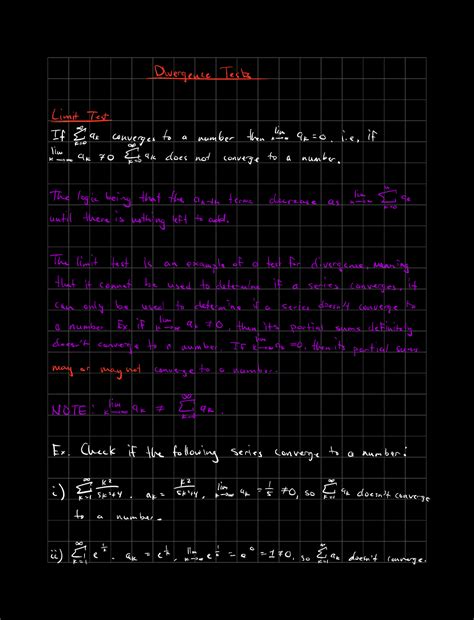 Divergence Tests
Limit Test
If ∞Σk=0 aₖ converges to a number then lim k→∞ aₖ = 0. i.e, if
lim k→∞ aₖ ≠ 0 ∞Σk=0 aₖ does not converge to a number.
The logic being that the aₖ-th terms decrease as lim Σ k=0 aₖ
until there is nothing left to add.
The limit test is an example of a test for divergence, meaning
that it cannot be used to determine if a series converges, it
can only be used to determine if a series doesn't converge to
a number. Ex if lim k→∞ aₖ ≠ 0, then its partial sums definitely
doesn't converge to a number. If lim k→∞ aₖ = 0, then its partial sums
may or may not converge to a number.
NOTE: lim k→∞ aₖ ≠ ∞Σk=0 aₖ.
Ex. Check if the following series converge to a number:
i) ∞Σk=1 k²/5k²+4. aₖ = k²/5k²+4, lim k→∞ aₖ = 1/5 ≠ 0, so ∞Σk=1 aₖ doesn't converge
to a number.
ii) ∞Σk=1 e^1/k. aₖ = e^1/k, lim k→∞ e^1/k = e⁰ = 1 ≠ 0, so ∞Σk=1 aₖ doesn't converge.